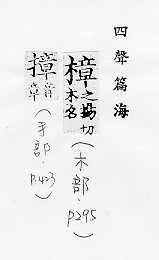 四聲篇海
樟 之揚切 木名
(木部.P295)
摔 音章
(手部.P.423)